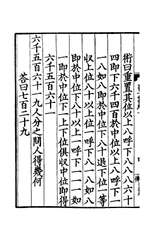 術曰重置其位以上八呼下八八八六十
四即下六千四百於中位以上八呼下一
一八如八即於中位下八十退下位一等
收上位八十以上位一呼下八一八如八
即於中位下八以上一呼下一一一如一
即於中位下一上下位俱收中位即得
六千五百六十一
六千五百六十一九人分之問人得幾何
答曰七百二十九